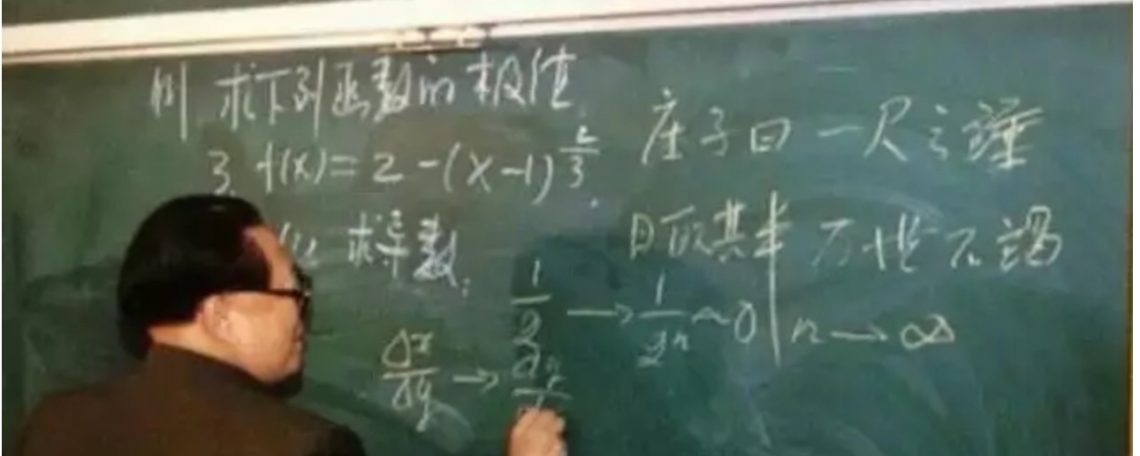 例 求下列函数的极值
3. f(x) = 2 - (x-1)^{2/3}.
求导数:
庄子曰 一尺之捶
日取其半 万世不竭
1/2 → 1/2ⁿ ~ 0 | n → ∞
Δx/Δy →